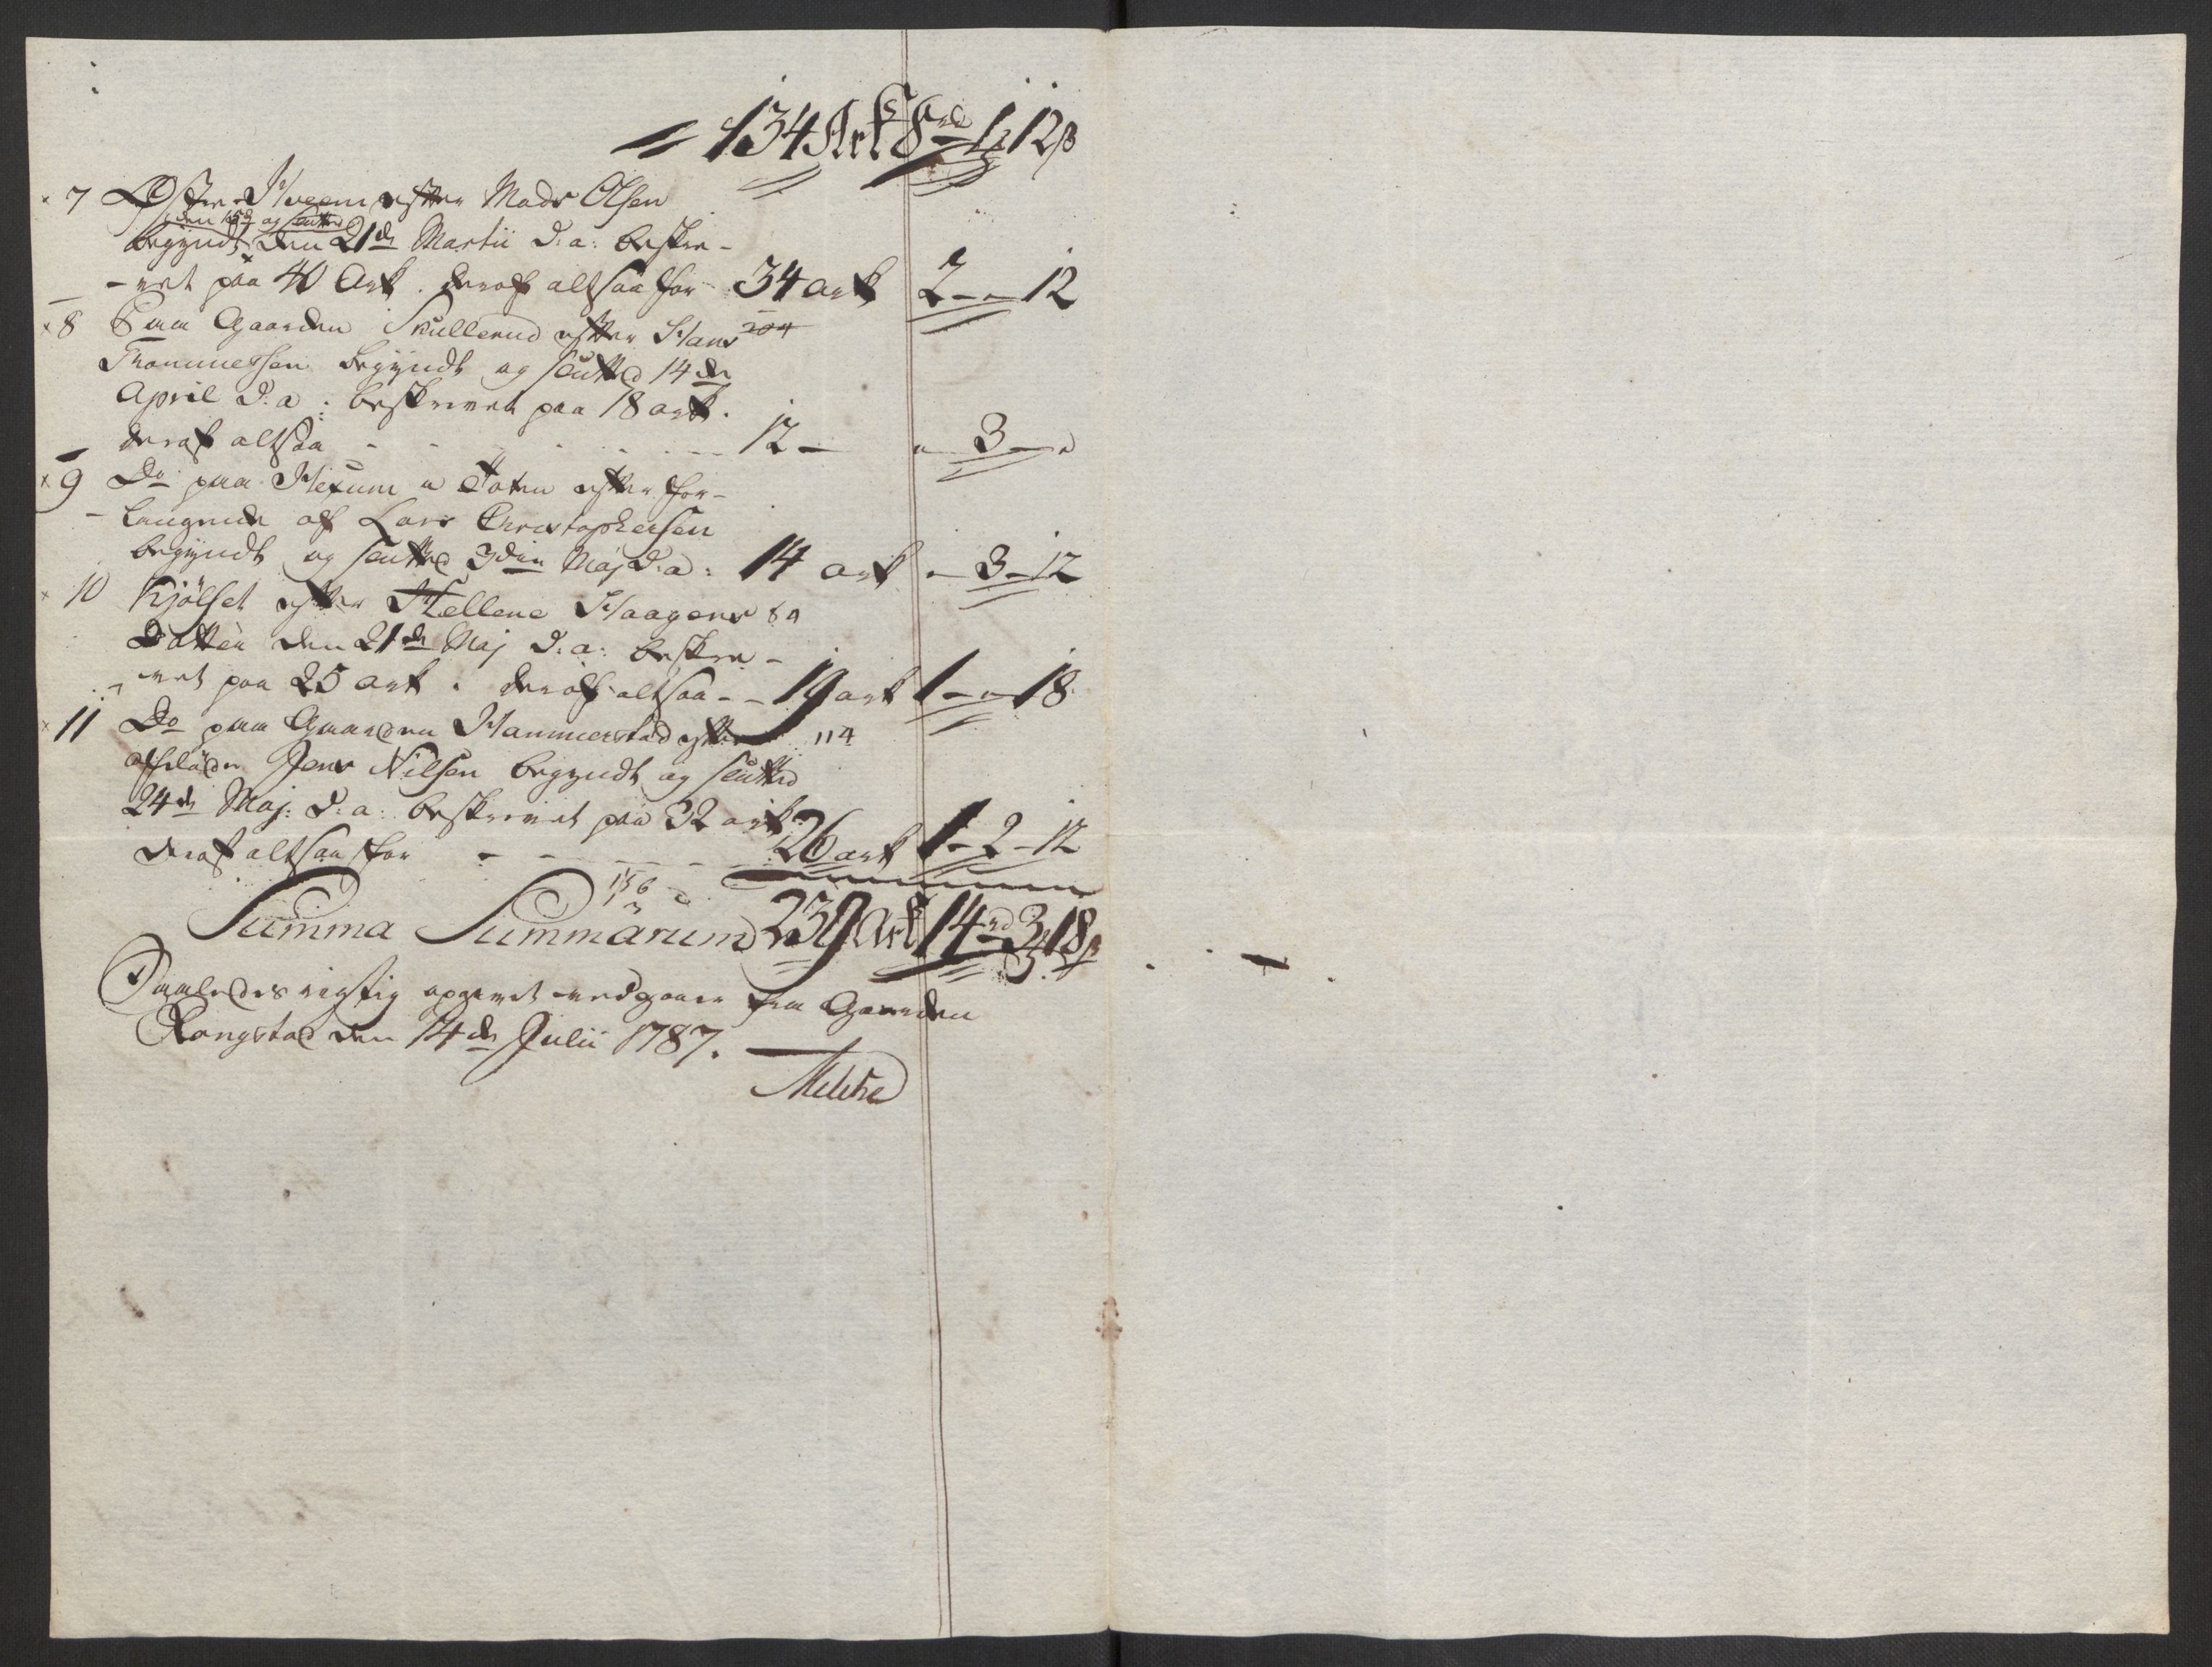 = 134 Ark 8 rd 1 12 ß
7 Østre Hveem efter Mads Olsen
den 15de og sluttet
begyndt den 21de Martii d: a: beskre-
-vet paa 40 Ark. deraf altsaa for 34 ark 2 - " 12
8 Paa Gaarden Skullerud efter Hans 204
Thommessen begyndt og sluttet 14de
April d: a: beskrevet paa 18 ark.
deraf altsaa - - - - 12 - " 3 - "
9 Do paa Hexum i Toten efter for-
-langende af Lars Christophersen
begyndt og sluttet 3die Maj d: a: 14 ark " 3 - 12
10 Kjölset efter Hellene Haagens 84
Datter den 21de Maj d: a: beskre-
-vet paa 25 ark. deraf altsaa - - 19 ark 1 - " 18
11 Do paa Gaarden Hammerstad efter 114
afdöde Jens Nilsen begyndt og sluttet
24de Maj: d: a: beskrevet paa 32 ark
deraf altsaa for - - - - 26 ark 1 - 2 - 12
156
Summa Summarum 239 Ark 14 rd 3 18 ß
Saaledes rigtig opgivet vedgaaer fra Gaarden
Rongstad den 14de Julii 1787.